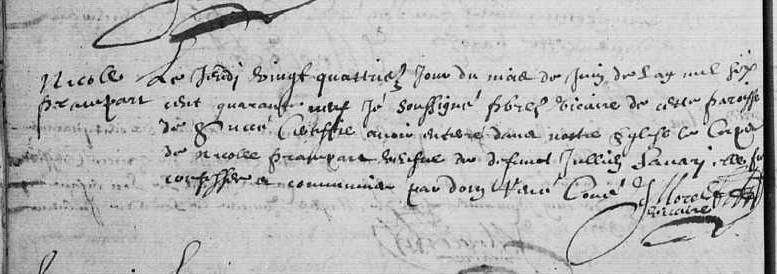 Nicole Le Jeudi vingt quattriē Jour du mois de Juin de l'an mil six
frampart cent quarante neuf Je soussigné pbre vicaire de cette paroisse
de certiffie avoir enterré dans nostre Eglise le Corps
de Nicole frampart vefve de defunct Jullien elle fut
confessée et communiée par dom René
J Morel
vicaire